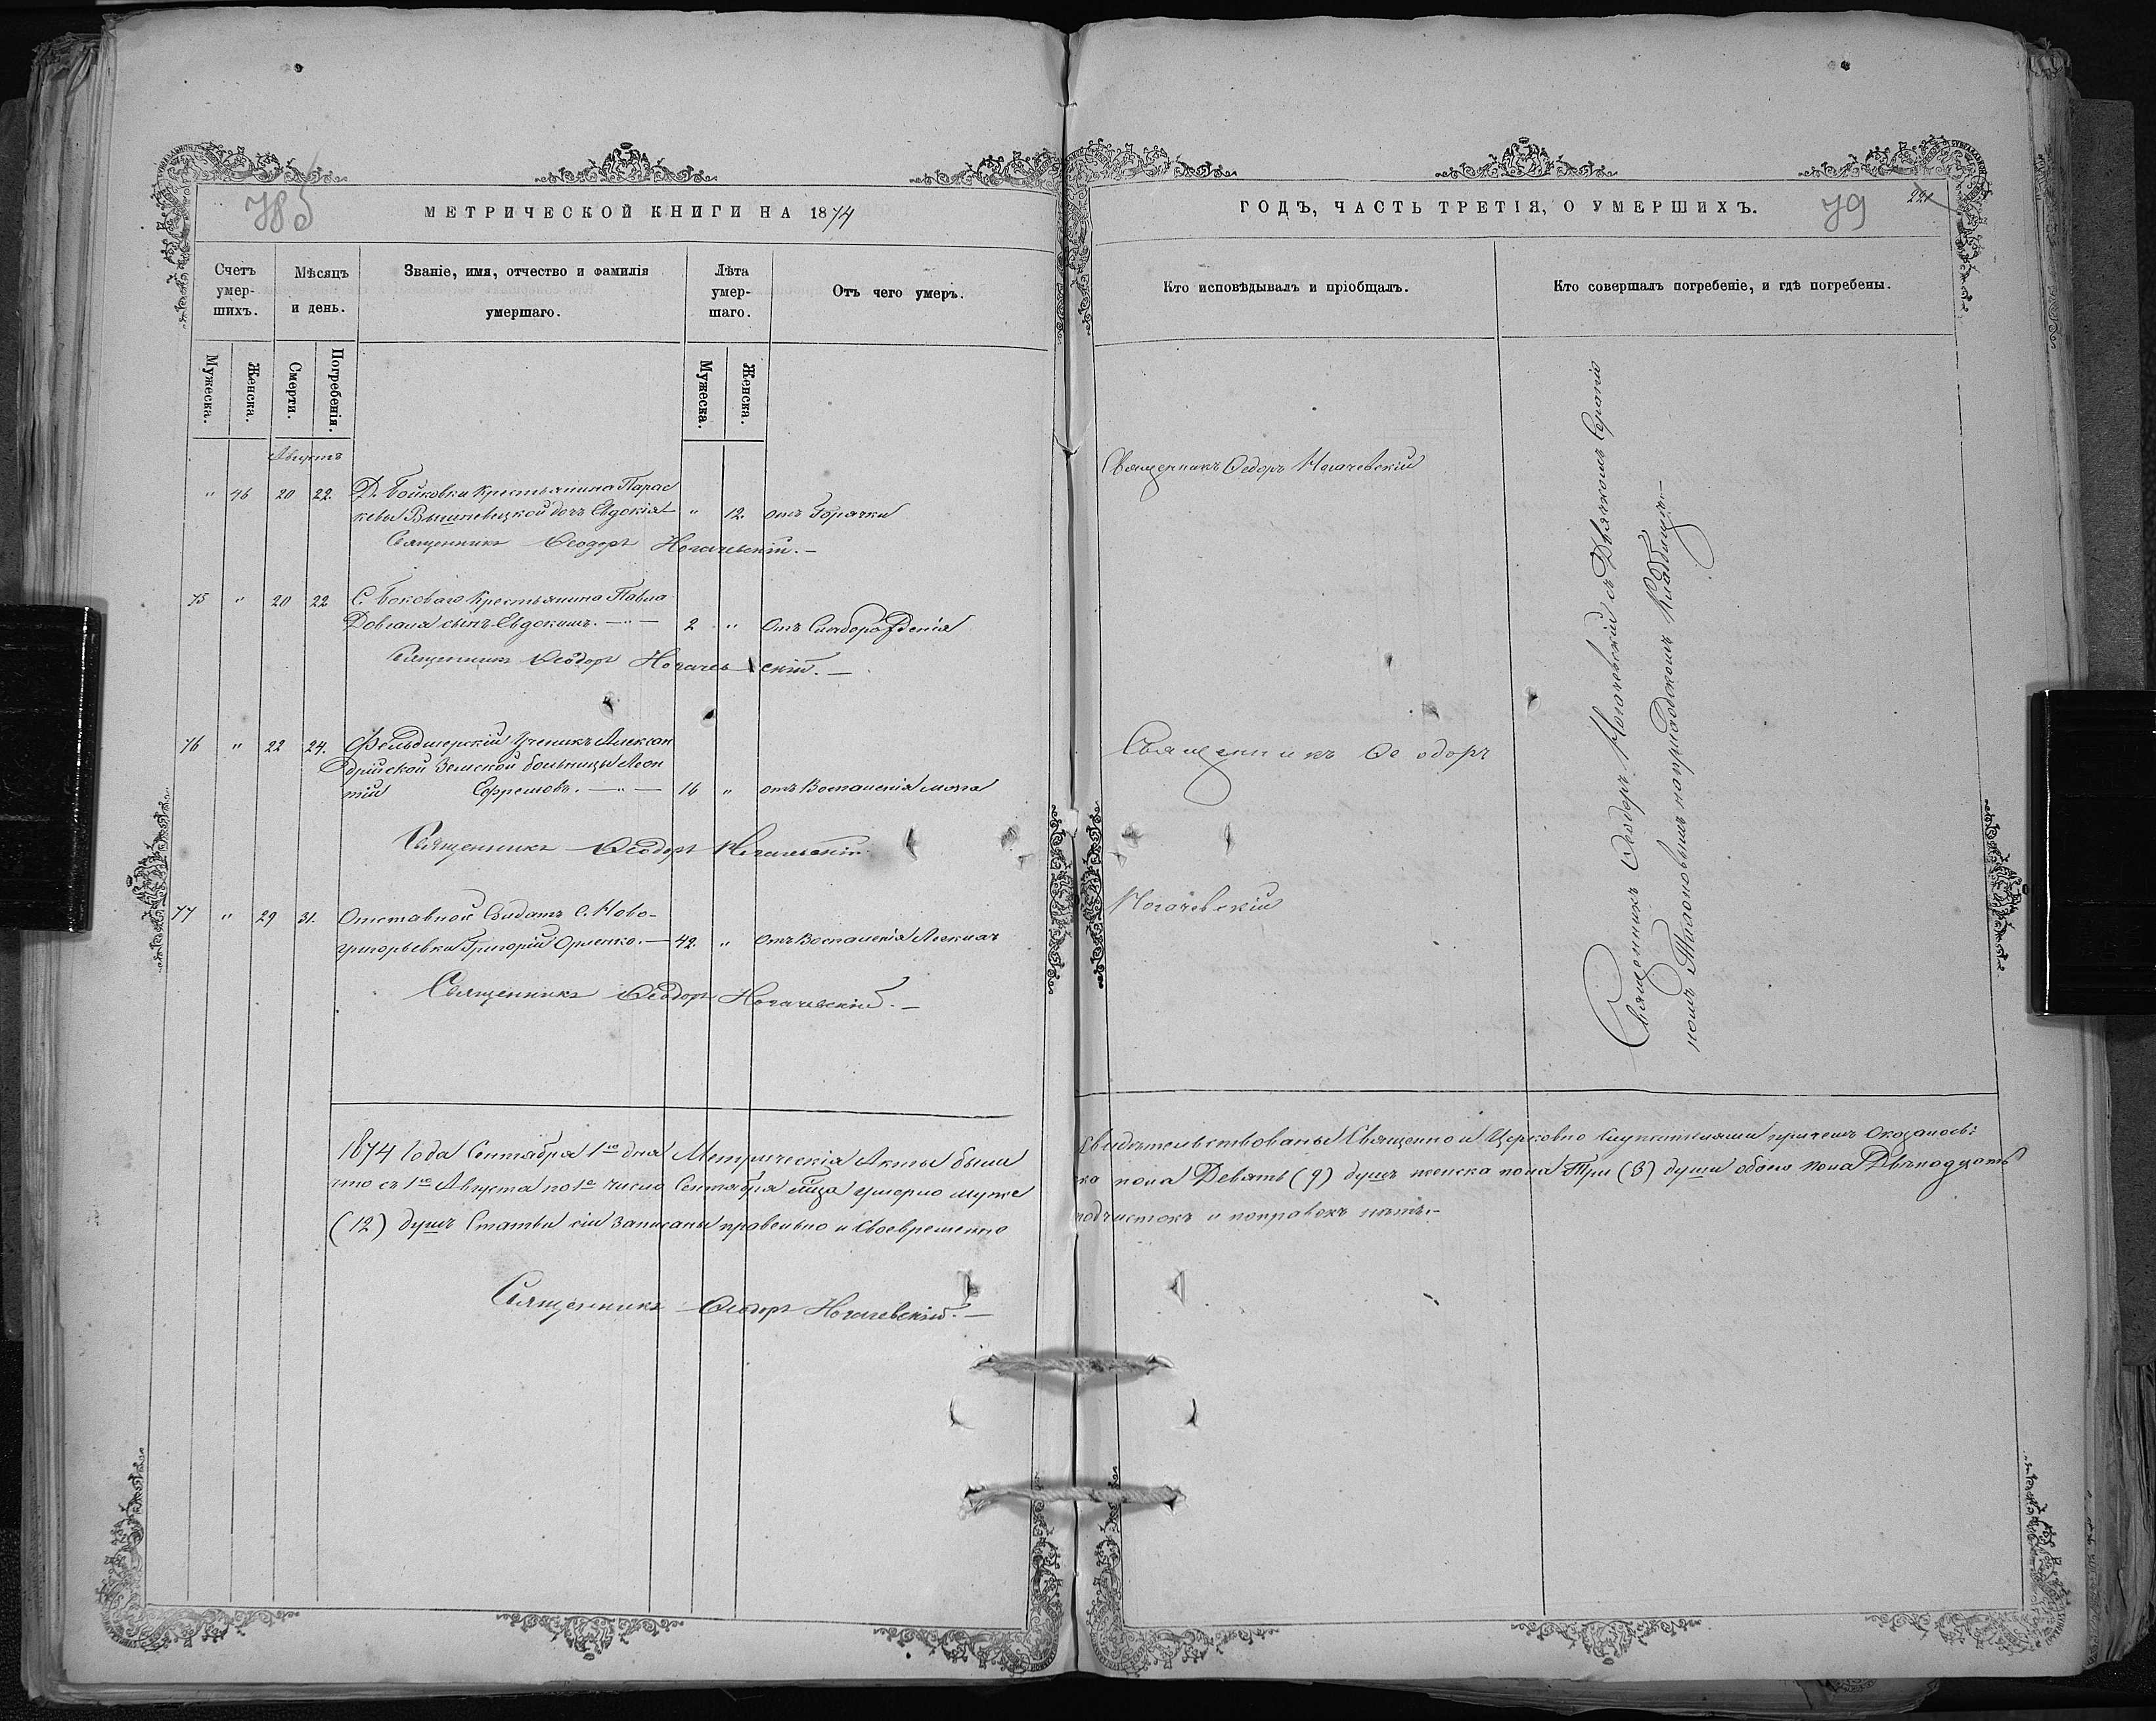 785
МЕТРИЧЕСКОЙ КНИГИ НА 1874
Счетъ умер-шихъ.
Мѣсяцъ и день.
Званіе, имя, отчество и фамилія умершаго.
Лѣта умер-шаго.
Отъ чего умеръ.
Мужеска.
Женска.
Смерти.
Погребенія.
Мужеска.
Женска.
Августъ
" 46 20 22. Д. Бойковки Крестьянина Парас
кевы Вышневецкой дочь Евдокія " 12. отъ Горячки
Священникъ Ѳеодоръ Ногачевскій. —
75 " 20 22 С. Боковаго Крестьянина Павла
Довганя сынъ Евдокимъ. — " — 2 " Отъ Слаборожденія
Священникъ Ѳеодоръ Ногачевскій. —
76 " 22 24. Фельдшерскій Ученикъ Алексан
дрійской Земской больницы Леон
тій Ефремовъ. — " — 16 " отъ Воспаленія мозга
Священникъ Ѳеодоръ Ногачевскій
77 " 29 31. Отставной Солдатъ С. Ново-
григорьевки Григорій Орленко. — 42. " Отъ Воспаленія Легкихъ
Священникъ Ѳеодоръ Ногачевскій. —
1874 Года Сентября 1го дня Метрическія Акты были
что съ 1го Августа по 1е число Сентября мѣсяца умерло муже
(12) душъ Статьи сіи записаны правельно и Своевременно
Священникъ Ѳеодоръ Ногачевскій. —
ГОДЪ, ЧАСТЬ ТРЕТІЯ, О УМЕРШИХЪ.
79
221
Кто исповѣдывалъ и пріобщалъ.
Кто совершалъ погребеніе, и гдѣ погребены.
Священникъ Ѳеодоръ Ногачевскій
Священникъ Ѳеодоръ
Ногачевскій
Священникъ Ѳеодоръ Ногачевскій съ Дьячкомъ
на приходскомъ Кладбищѣ. —
Свидѣтельствованы Священно и Церковно Служителями причемъ Оказалось:
ска пола Девять (9) душъ женска пола Три (3) души обоего пола Двѣнадцать
подчистокъ и поправокъ нѣтъ. —